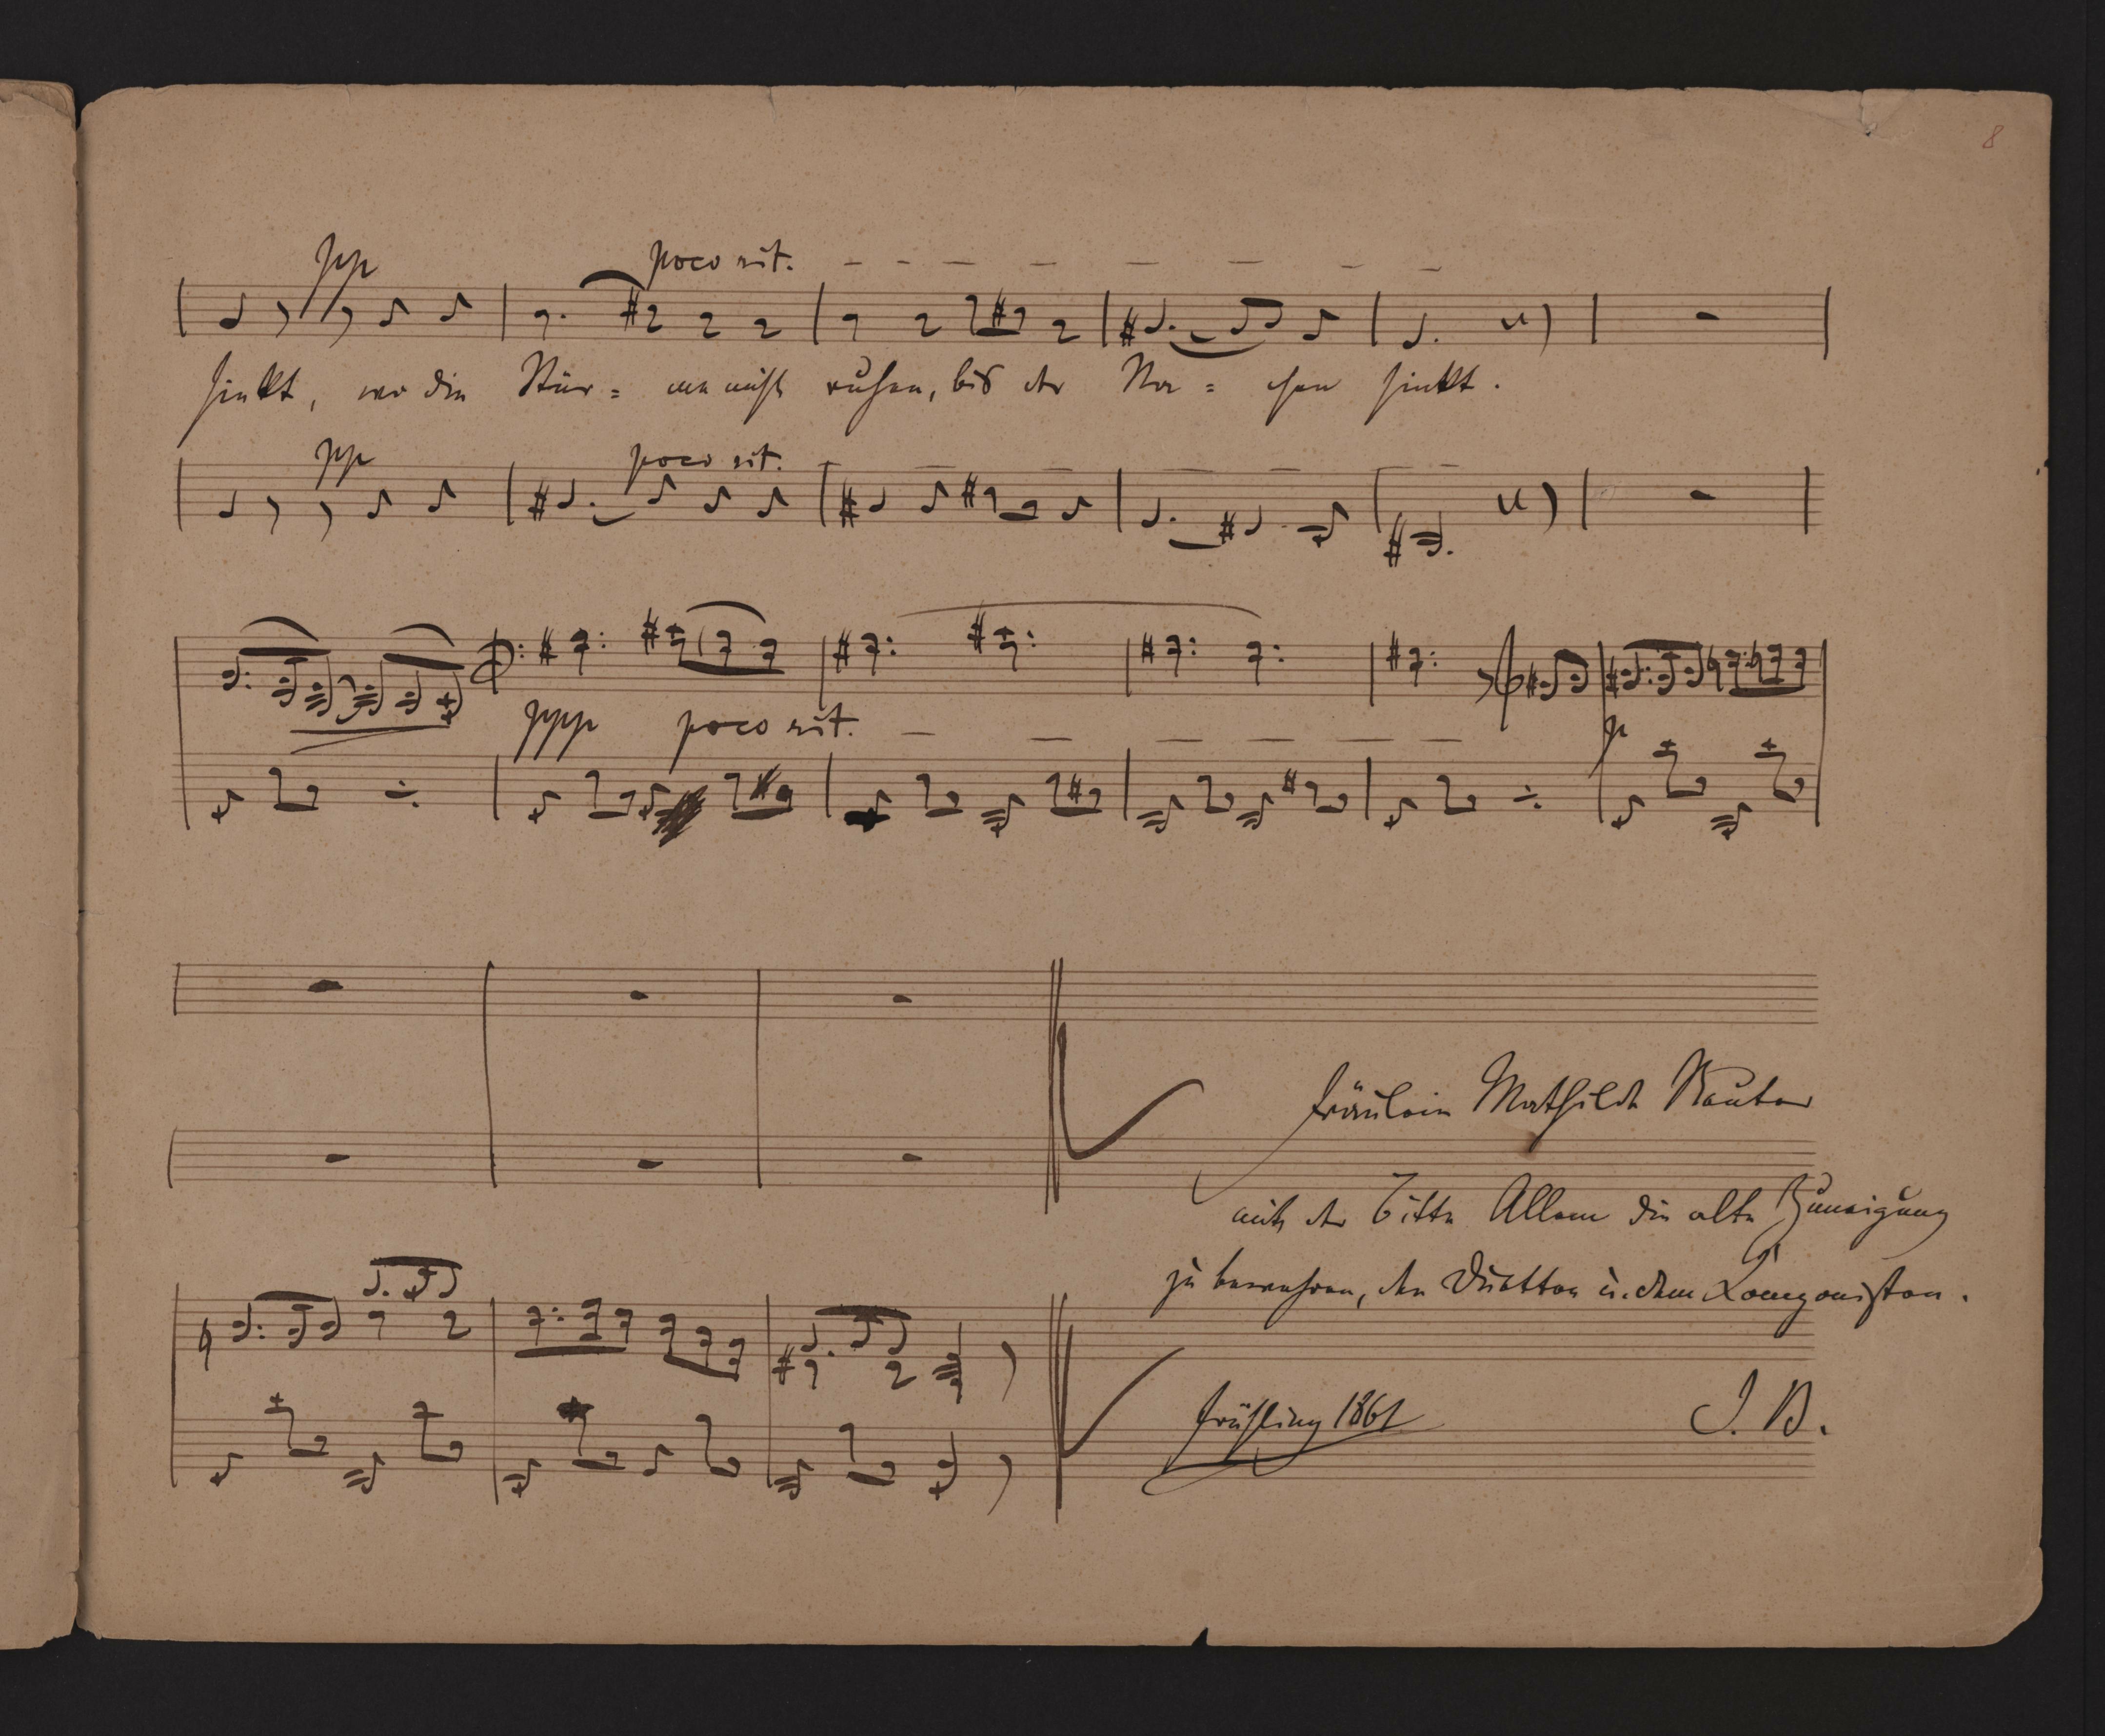 8
pp poco rit.
sinkt, wo die Stür = me nicht ruhen, bis der Na = chen sinkt.
pp poco rit.
ppp poco rit. p
Fräulein Mathilde
mit der Bitte Allem die alte Zuneigung
zu bewahren, den Duetten u. dem Komponisten.
Frühling 1861 J. B.